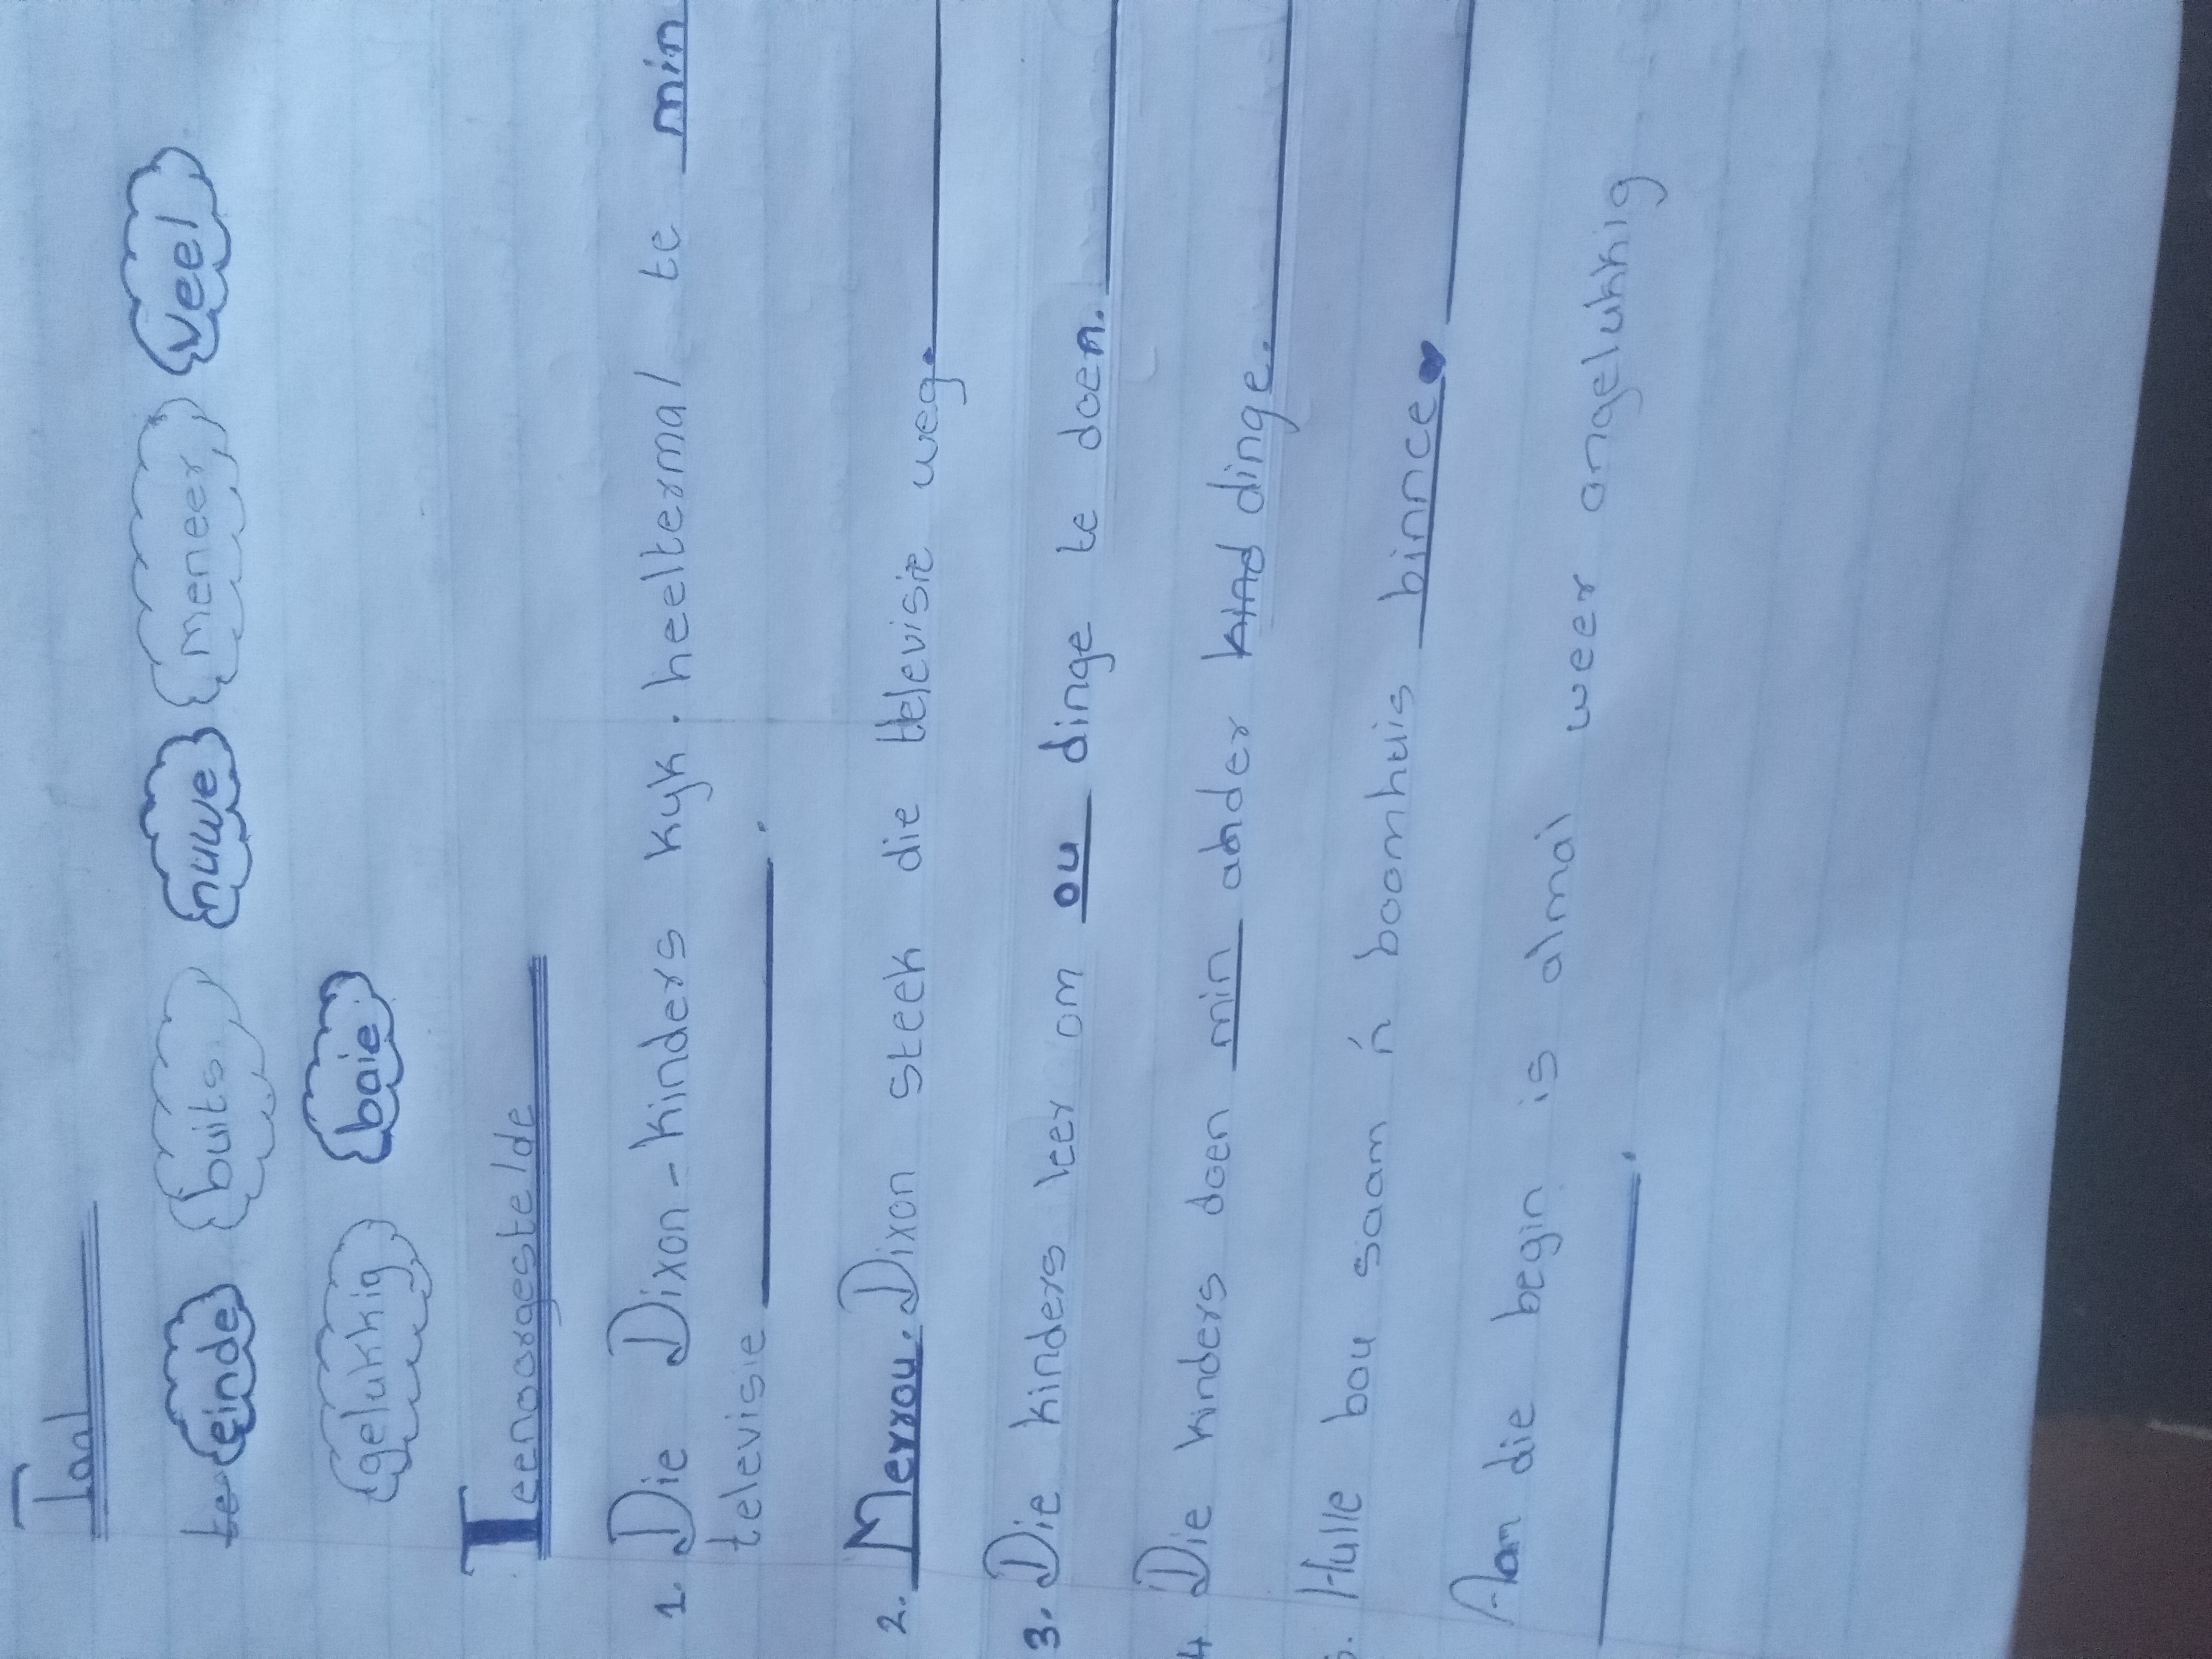 Taal
te einde buits nuwe meneer veel
gelukkig baie
Teenoorgestelde
1. Die Dixon-kinders kyk. heeltermal te min
televisie ____________ .
2. Merrou. Dixon steek die televisie weg. ____________
3. Die kinders leer om ou dinge te doen. ____________
4 Die kinders doen min ander kind dinge. ____________
5. Hulle bou saam 'n boomhuis binnce. ____________
Aan die begin is almal weer ongelukkig
____________ .